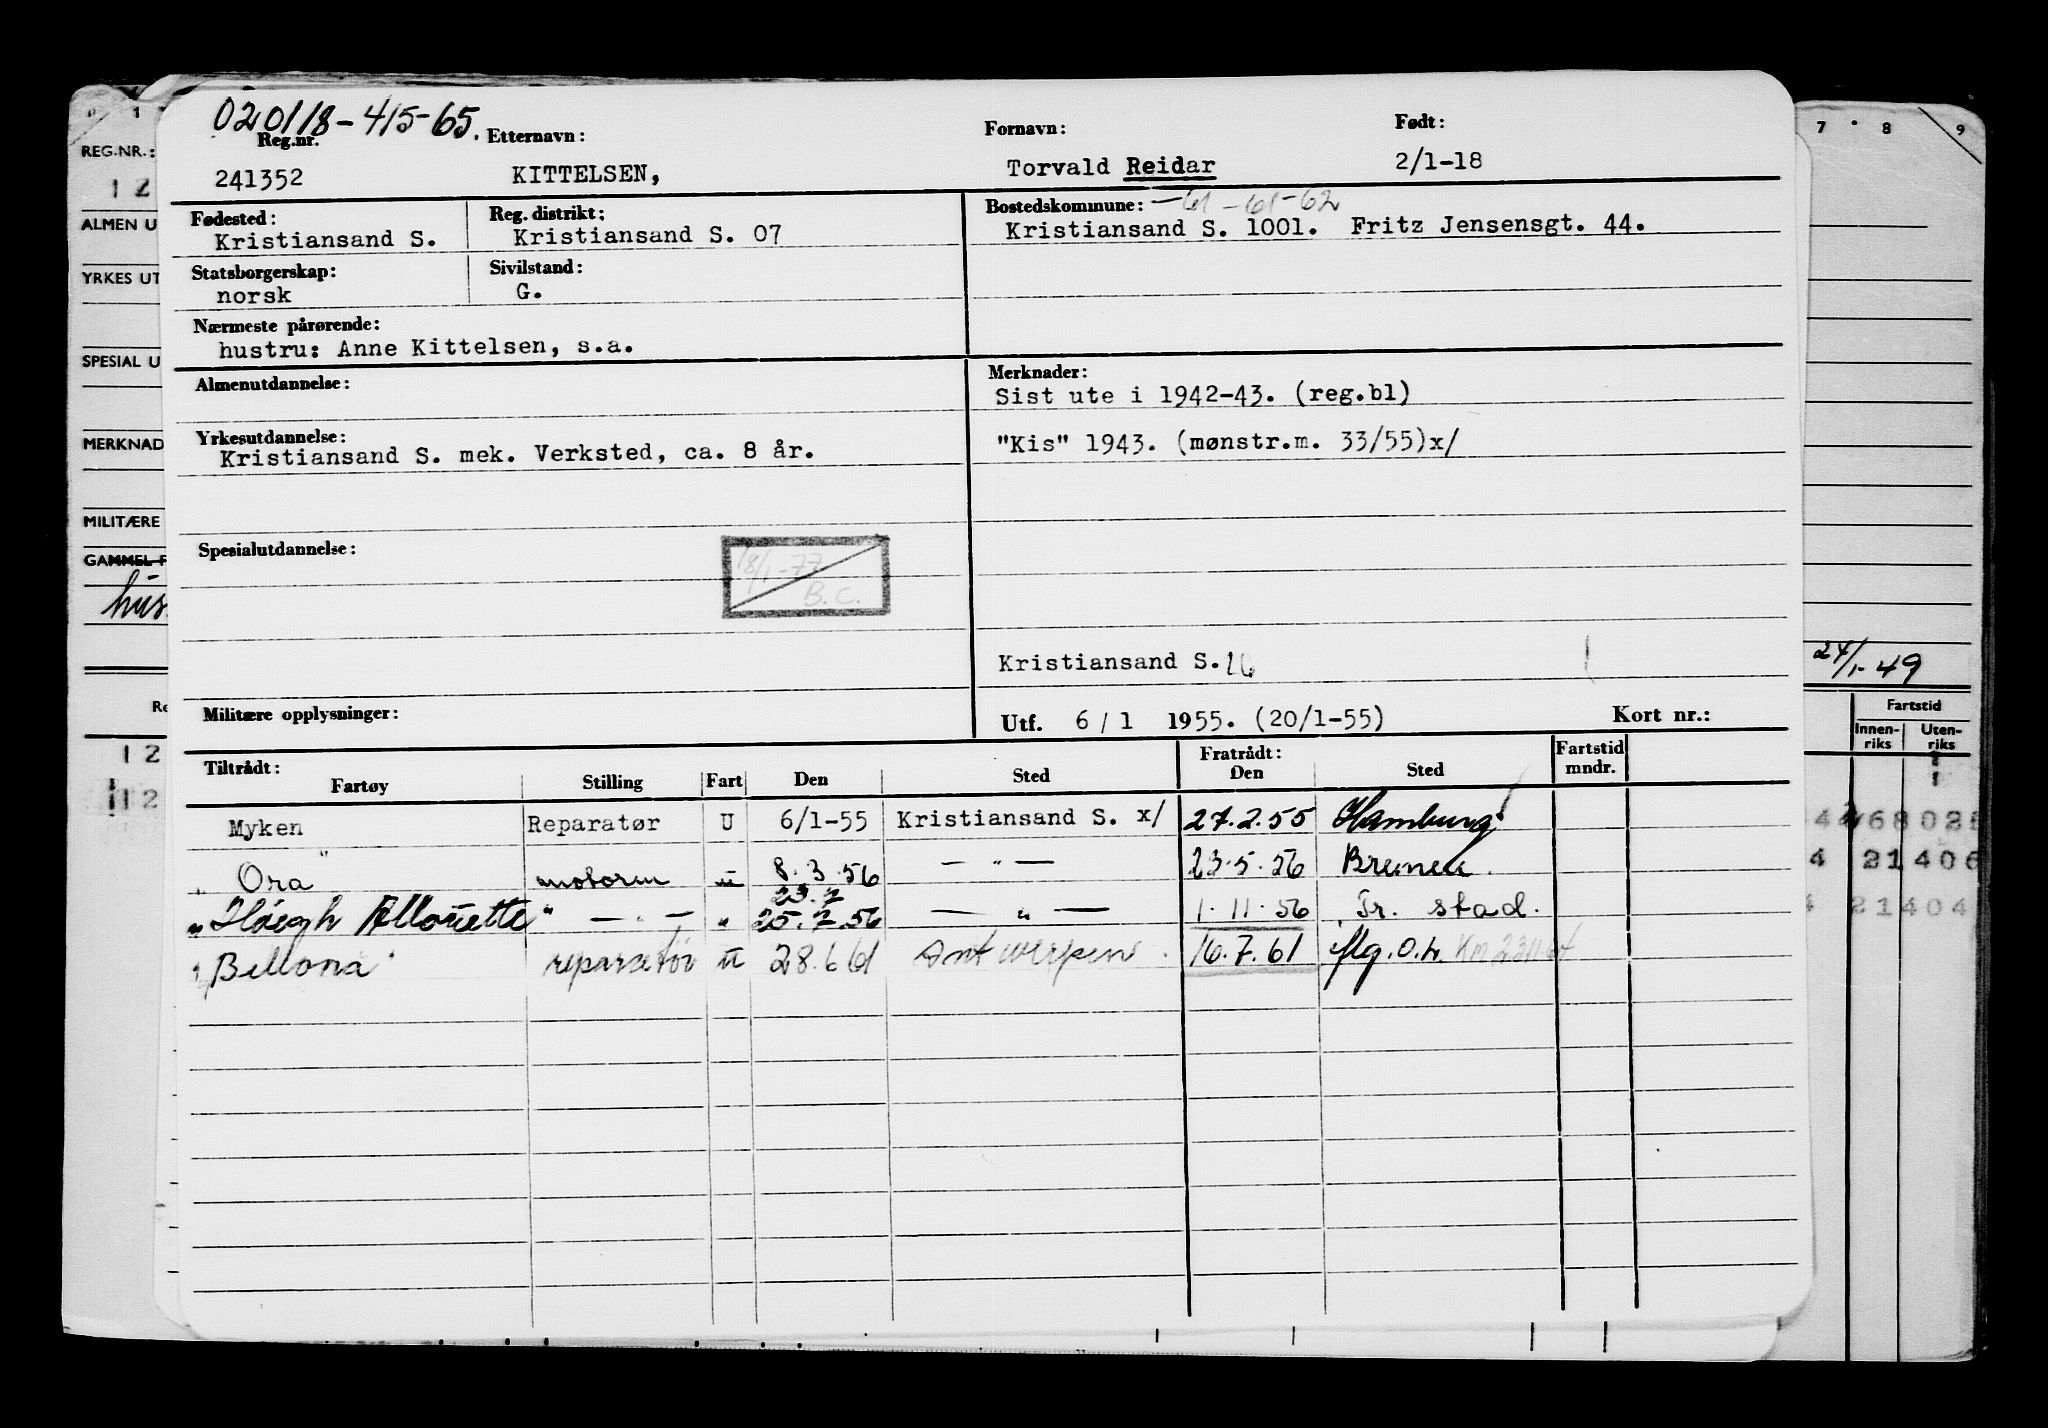 020118-415-65.
Reg.nr. Etternavn: Fornavn: Født:
241352 KITTELSEN, Torvald Reidar 2/1-18
Fødested: Reg. distrikt: Bostedskommune: -61 -61-62
Kristiansand S. Kristiansand S. 07 Kristiansand S. 1001. Fritz Jensensgt. 44.
Statsborgerskap: Sivilstand:
norsk G.
Nærmeste pårørende:
hustru: Anne Kittelsen, s.a.
Almenutdannelse: Merknader:
Sist ute i 1942-43. (reg.bl)
Yrkesutdannelse:
Kristiansand S. mek. Verksted, ca. 8 år. "Kis" 1943. (mønstr.m. 33/55)x/
Spesialutdannelse:
18/1-77
B.C.
Kristiansand S. 16
Militære opplysninger: Utf. 6/1 1955. (20/1-55) Kort nr.:
Tiltrådt: Fratrådt: Fartstid
Fartøy Stilling Fart Den Sted Den Sted mndr.
Myken Reparatør U 6/1-55 Kristiansand S. x/ 27.2.55 Hamburg
" Ora" motorm u 8.3.56 — " — 23.5.56 Bremen.
23.7
" Høegh Allouette" — " — " 25.7.56 — " — 1.11.56 Fr. stad.
" Bellona" reparatør u 28.6.61 Antwerpen. 16.7.61 iflg. O.L.
0 1
REG.NR.:
12
ALMEN U
YRKES UT
SPESIAL U
MERKNAD
MILITÆRE
GAMMEL F
hus
Re
12
12
7 8 9
24/1-49
Fartstid
Innen-riks Uten-riks
4 21406
4 21404